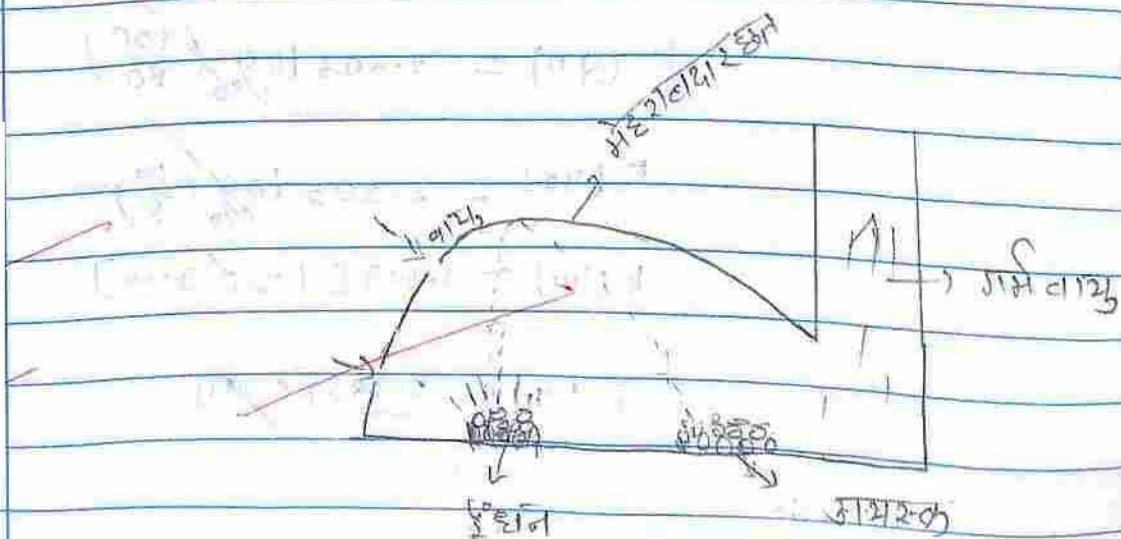 मेहराबदार छत
वायु
गर्म वायु
ईंधन
अयस्क